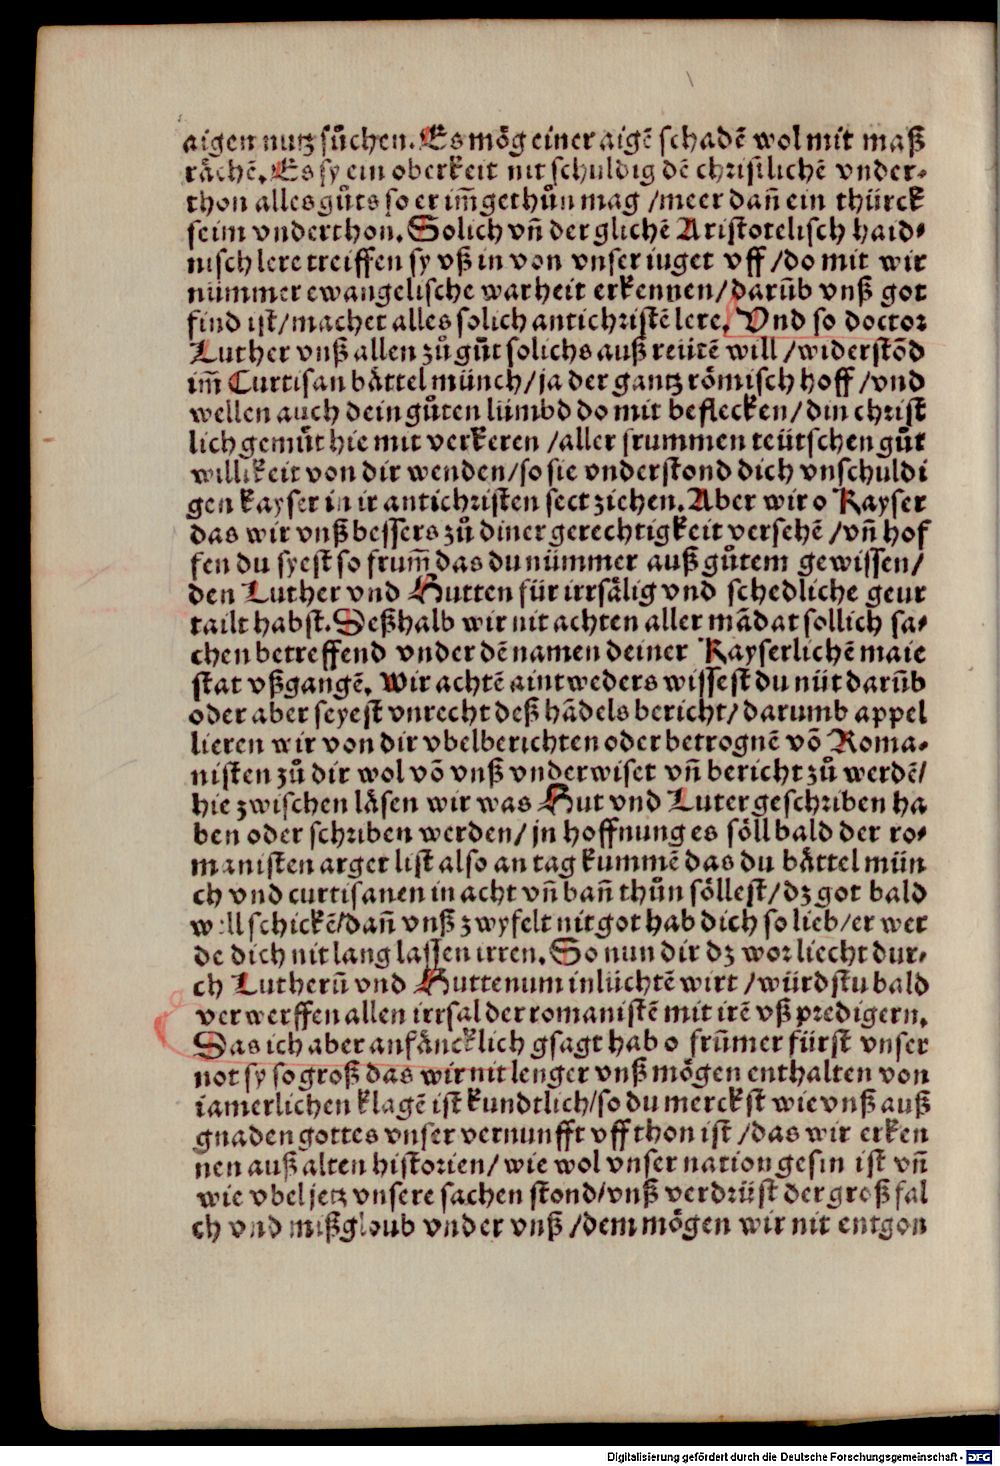 aigen nutz sůchen. Es mög einer aigē schadē wol mit maß
rächē. Es sy ein oberkeit nit schuldig dē christlichē vnder⸗
thon alles gůts so er im̄ gethůn mag /meer dañ ein thürck
seim vnderthon. Solich vñ der glichē Aristotelisch haid⸗
nisch lere treiffen sy vß in von vnser iuget vff /do mit wir
nümmer ewangelische warheit erkennen/darūb vnß got
find ist/machet alles solich antichristē lere. Vnd so doctor
Luther vnß allen zů gůt solichs auß reütē will /widerstōd
im̄ Curtisan bättel münch/ja der gantz römisch hoff /vnd
wellen auch dein gůten lümbd do mit beflecken/din christ
lich gemůt hie mit verkeren /aller frummen teütschen gůt
willikeit von dir wenden/so sie vnderstond dich vnschuldi
gen kayser in ir antichristen sect ziehen. Aber wir o Kayser
das wir vnß bessers zů diner gerechtigkeit versehē /vñ hof
fen du syest so frum̄ das du nümmer auß gůtem gewissen/
den Luther vnd Hutten für irrsälig vnd schedliche geur
tailt habst. Deßhalb wir nit achten aller mādat sollich sa⸗
chen betreffend vnder dē namen deiner Kayserlichē maie
stat vßgangē. Wir achtē aintweders wissest du nüt darūb
oder aber seyest vnrecht deß hādels bericht/ darumb appel
lieren wir von dir vbelberichten oder betrognē vō Roma⸗
nisten zů dir wol vō vnß vnderwiset vñ bericht zů werdē/
hie zwischen läsen wir was Hut vnd Luter geschriben ha
ben oder schriben werden/ jn hoffnung es söll bald der ro⸗
manisten arger list also an tag kummē das du bättel mün
ch vnd curtisanen in acht vñ bañ thůn söllest/dz got bald
well schickē/dañ vnß zwyfelt nit got hab dich so lieb/er wer
de dich nit lang lassen irren. So nun dir dz wor liecht dur⸗
ch Lutherū vnd Huttenum inlüchtē wirt /würdstu bald
verwerffen allen irrsal der romanistē mit irē vß predigern.
Das ich aber anfäncklich gsagt hab o frūmer fürst vnser
not sy so groß das wir nit lenger vnß mögen enthalten von
iamerlichen klagē ist kundtlich/so du merckst wie vnß auß
gnaden gottes vnser vernunfft vff thon ist /das wir erken
nen auß alten historien/ wie wol vnser nation gesin ist vñ
wie vbel jetz vnsere sachen stond/vnß verdrüst der groß fal
ch vnd mißgloub vnder vnß /dem mögen wir nit entgon
Digitalisierung gefördert durch die Deutsche Forschungsgemeinschaft - DFG